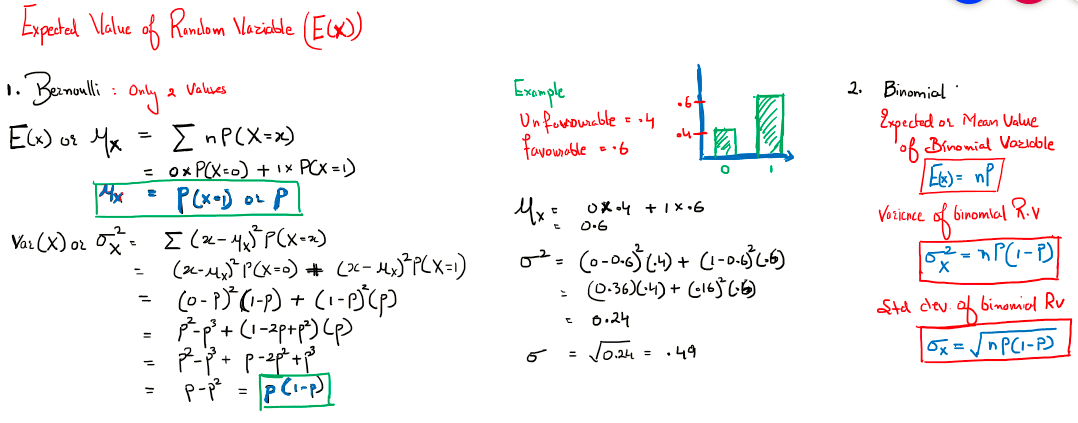 Expected Value of Random Variable (E(x))
1. Bernoulli : Only 2 Values
E(x) or μx = Σ n P(X=x)
= 0 x P(X=0) + 1 x P(X=1)
μx = P(X=1) or P
Var(X) or σx² = Σ (x-μx)² P(X=x)
= (x-μx)² P(X=0) + (x-μx)² P(X=1)
= (0-P)² (1-p) + (1-P)² (p)
= p²-p³ + (1-2p+p²) (p)
= p²-p³ + p-2p²+p³
= p-p² = p(1-p)
Example
Unfavourable = .4
favourable = .6
.6
.4
0 1
μx = 0x.4 + 1x.6
= 0.6
σ² = (0-0.6)² (.4) + (1-0.6)² (.6)
= (0.36)(.4) + (.16)² (.6)
= 0.24
σ = √0.24 = .49
2. Binomial
Expected or Mean Value
of Binomial Variable
E(x) = nP
Varience of binomial R.V
σx² = nP(1-P)
Std dev. of binomial RV
σx = √nP(1-P)